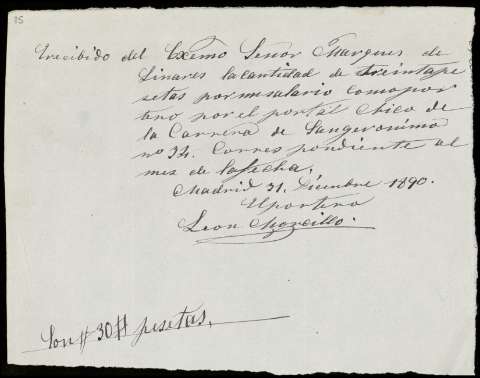 15
Recibido del Exemo Señor Marques de
Linares la cantidad de treinta pe
setas por mi salario como por
tero por el portal Chico de
la Carrera de Sangeronimo
nº 34. Corres pondiente al
mes de la fecha.
Madrid 31. Diciembre 1890.
El portero
Leon Morcillo.
Son # 30 # pesetas.